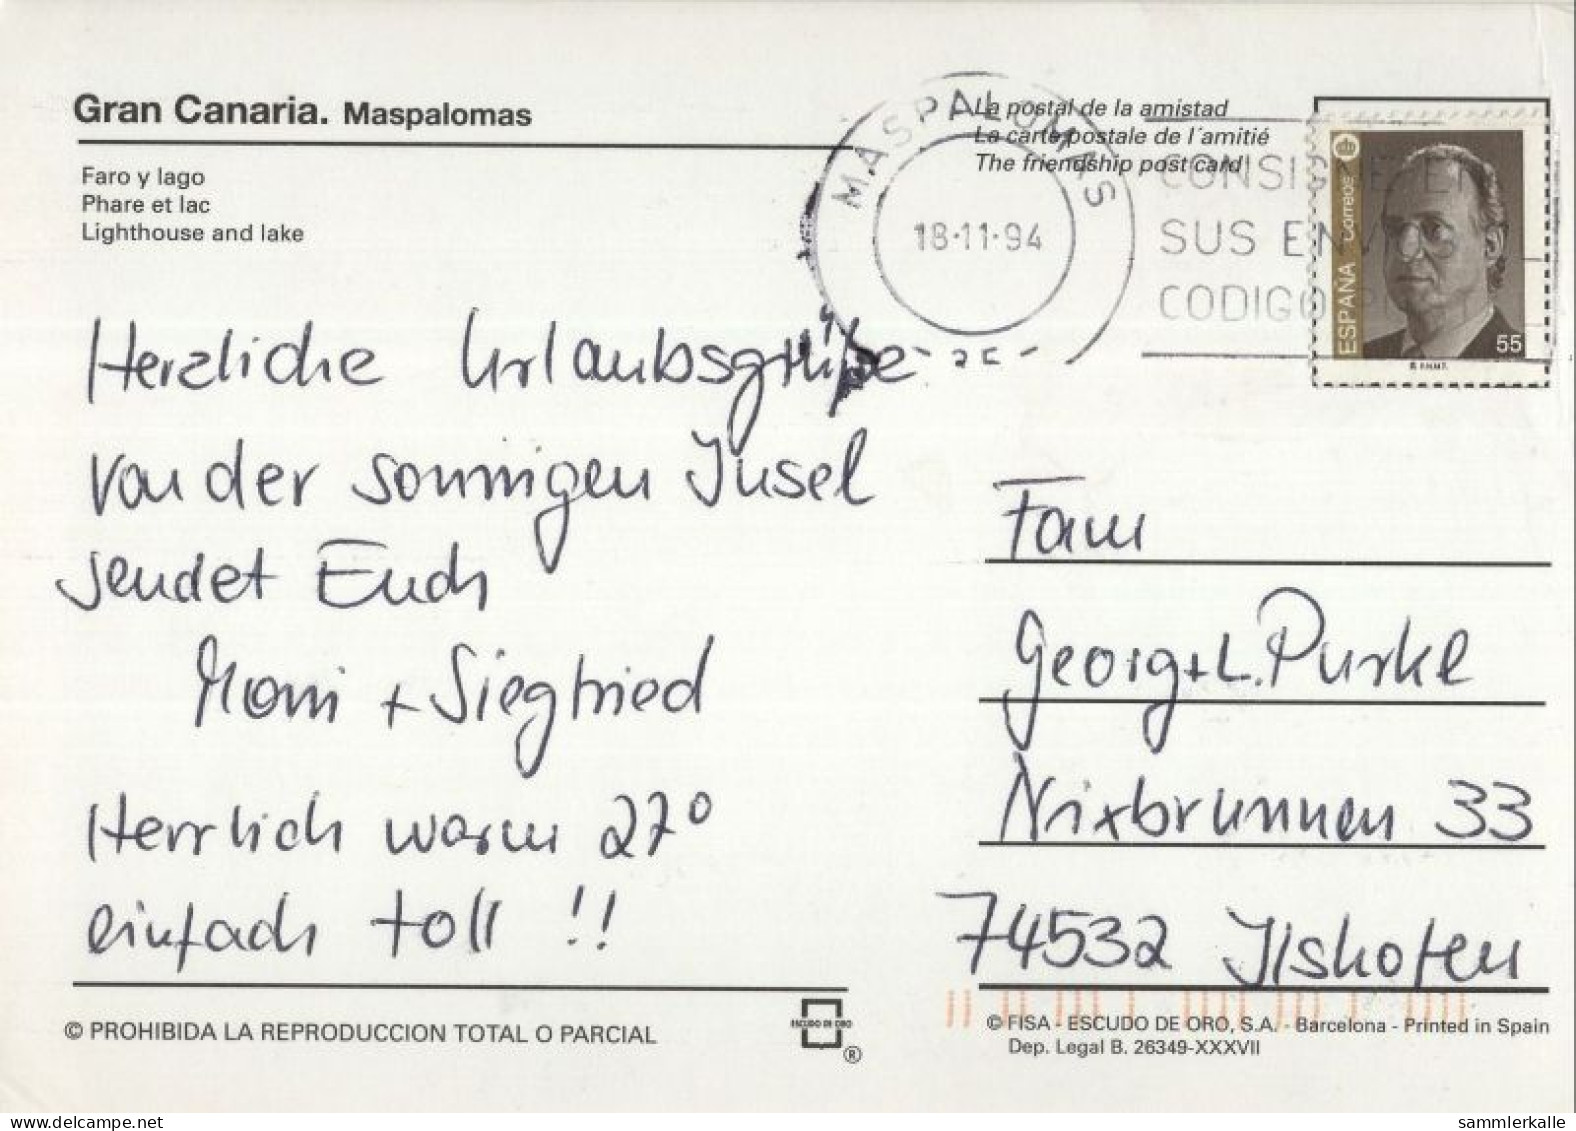 Gran Canaria. Maspalomas
Faro y lago
Phare et lac
Lighthouse and lake
La postal de la amistad
La carte postale de l´amitié
The friendship post card
MASPALOMAS
18-11-94
CONSIGNE EN
SUS ENVIOS
CODIGO
Correos
ESPAÑA
55
Herzliche Urlaubsgrüße
von der sonnigen Insel
sendet Euch
Moni + Siegfried
Herrlich warm 27°
einfach toll !!
Fam
Georg + L. Purkl
Nixbrunnen 33
74532 Ilshofen
© PROHIBIDA LA REPRODUCCION TOTAL O PARCIAL
ESCUDO DE ORO
®
© FISA - ESCUDO DE ORO, S.A. - Barcelona - Printed in Spain
Dep. Legal B. 26349-XXXVII
www.delcampe.net
sammlerkalle